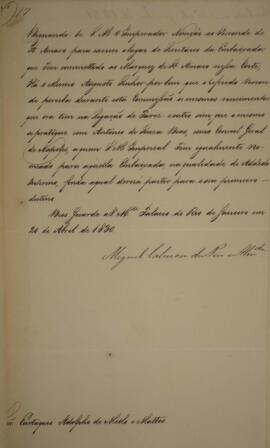 17
Havendo S. M. O Imperador Nomeado ao Visconde de
St. Amaro para exercer o lugar de Secretario da Embaixada
que tem commettido ao Marquez de St. Amaro nessa Corte,
Ha o Mesmo Augusto Senhor por bem que o referido Visconde
perceba durante esta Commissão o mesmo vencimento
que ora tem na Legação de Suas
se pratique com Antonio de Souza Dias, seu Consul Geral
de Napoles, a quem S. M. Imperial Tem igualmente No-
meado para aquella Embaixada, na qualidade de Addido
finda a qual deverá partir para o seu primeiro
destino.
Deos Guarde a V. Mce. Palacio do Rio de Janeiro em
20 de Abril de 1830
Miguel Calmon du Pin e Almda
Snr. Eustaquio Adolpho de Mello e Mattos